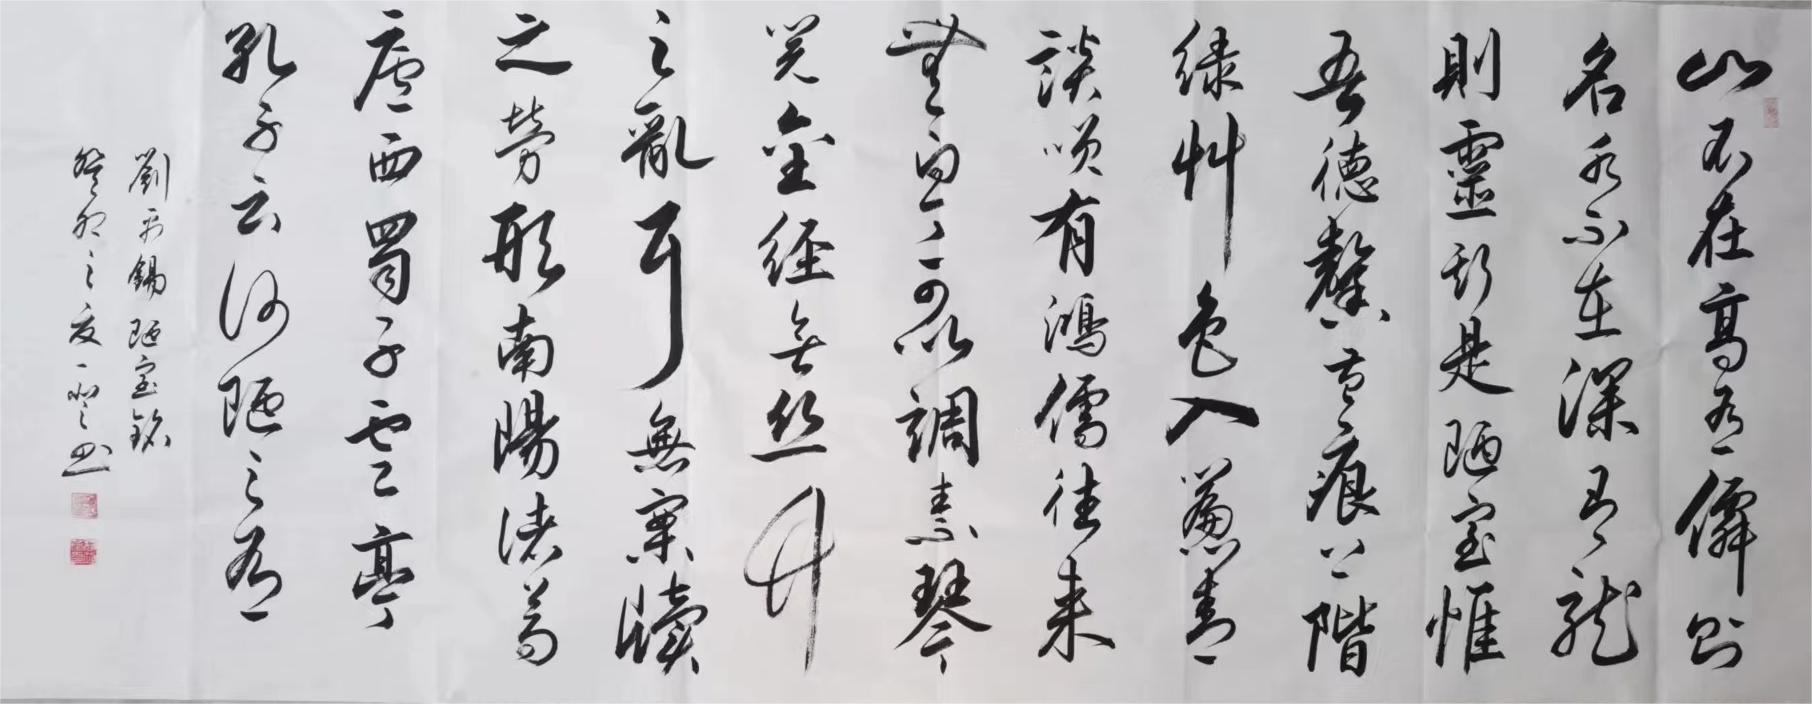 山不在高有僊則
名水不在深有龍
則靈斯是陋室惟
吾德馨苔痕上階
綠艸色入簾青
談咲有鴻儒往來
無白丁可以調素琴
閱金經無絲竹
之亂耳無案牘
之勞形南陽諸葛
廬西蜀子雲亭
孔子云何陋之有
劉禹錫陋室銘
癸卯之夏一书